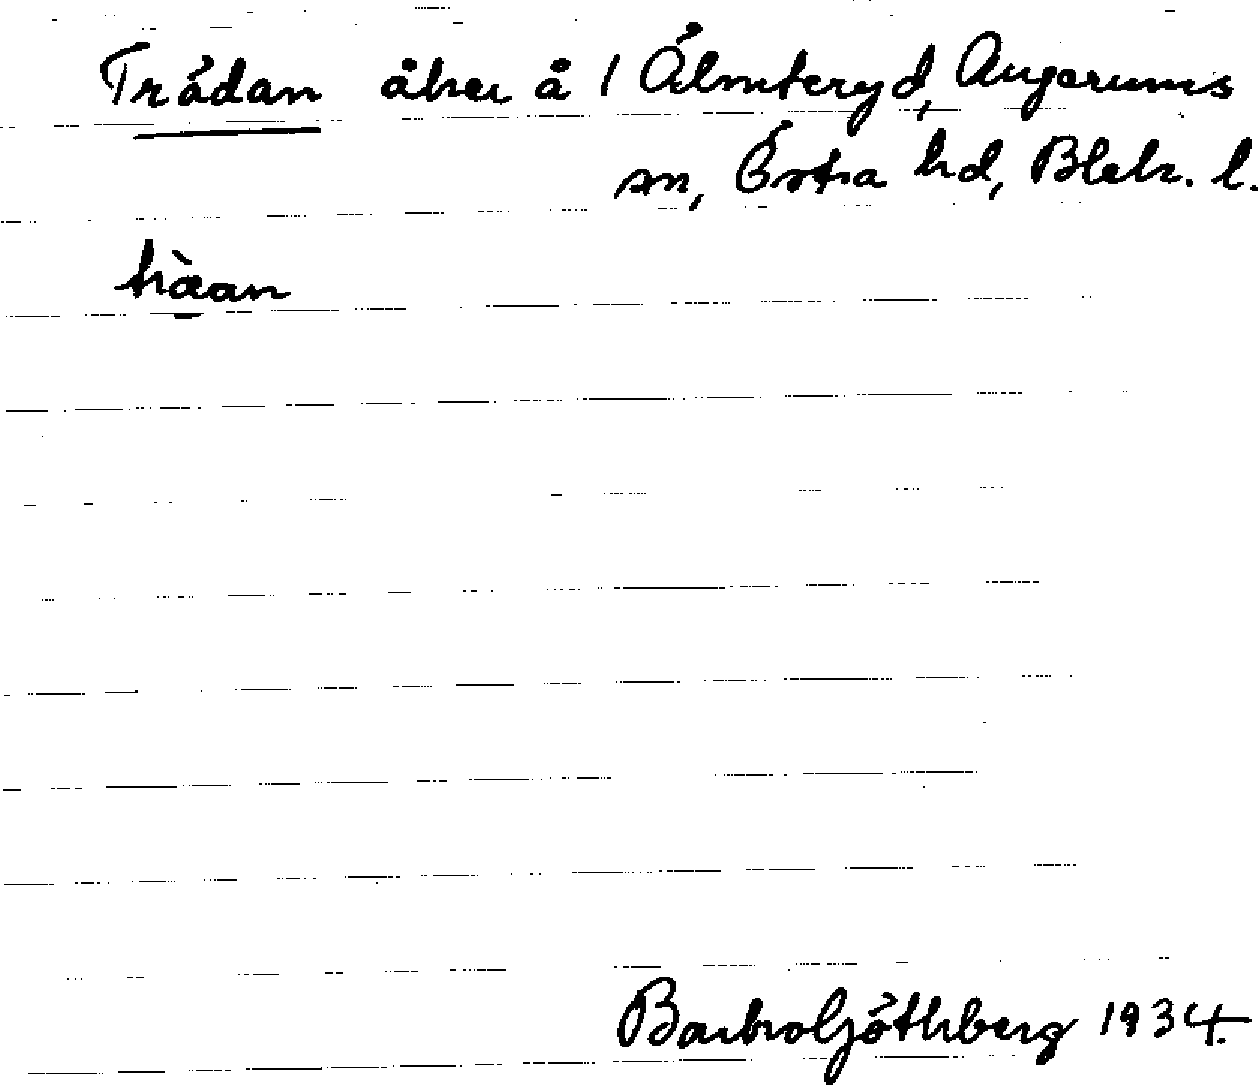 Trådan åker å 1 Älmteryd, Augerums
sn, Östra hd, Blek. l.
tràan
Barbro Göthberg 1934.